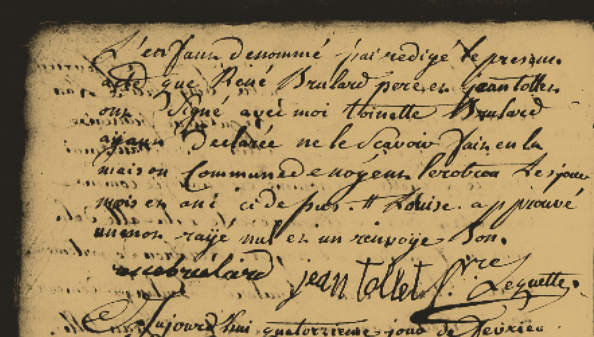 L'enfant denommé j'ai redigé le present
acte que René Brulard pere et jean tollet
ont signé avec moi thoinette Brulard
ayant declarée ne le scavoir fait en la
maison Commune de noyent les jour
mois et an ci de sus. # Louise approuvé
un mot rayé nul et un renvoye bon.
rené brulard jean tollet Lequette
Aujourd'hui quatorzieme jour de fevrier